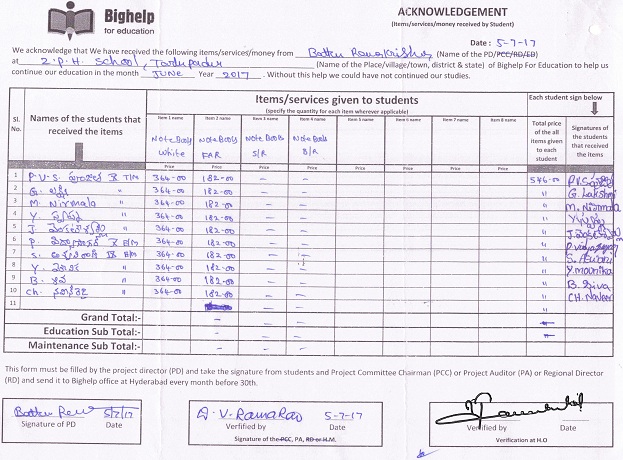 Bighelp
for education
ACKNOWLEDGEMENT
(Items/services/money received by Student)
Date : 5-7-17
We acknowledge that We have received the following items/services/money from Battu Ramakrishna (Name of the PD/PCC/RD/ED)
at Z.P.H. School, (Name of the Place/village/town, district & state) of Bighelp For Education to help us
continue our education in the month JUNE Year 2017. Without this help we could have not continued our studies.
Sl. No.
Names of the students that received the items
Items/services given to students
(specify the quantity for each item wherever applicable)
Each student sign below
Item 1 name Item 2 name Item 3 name Item 4 name Item 5 name Item 6 name Item 7 name Item 8 name
Note Books White
Note Books FAR
Note Books S/R
Note Books B/R
Total price of the all items given to each student
Signatures of the students that received the items
Price Price Price Price Price Price Price Price
1 P.V.S. 364-00 182-00 – – 546-00 P.V.S
2 G. లక్ష్మి " 364-00 182-00 – – " G. Lakshmi
3 M. Nirmala " 364-00 182-00 – – " M. Nirmala
4 Y. " 364-00 182-00 – – " Y.
5 J. " 364-00 182-00 – – " J.
6 P. 364-00 182-00 – – "
7 S. 364-00 182-00 – – " S.
8 Y. " 364-00 182-00 – – " Y. mounika
9 B. శివ " 364-00 182-00 – – " B. Siva
10 Ch. " 364-00 182-00 – – " CH. Naveen
11 "
Grand Total:-
Education Sub Total:-
Maintenance Sub Total:-
This form must be filled by the project director (PD) and take the signature from students and Project Committee Chairman (PCC) or Project Auditor (PA) or Regional Director
(RD) and send it to Bighelp office at Hyderabad every month before 30th.
Battu 5/7/17
Signature of PD Date
A.V. Rama Rao 5-7-17
Verified by Date
Signature of the PCC, PA, RD or H.M.
Verified by Date
Verification at H.O